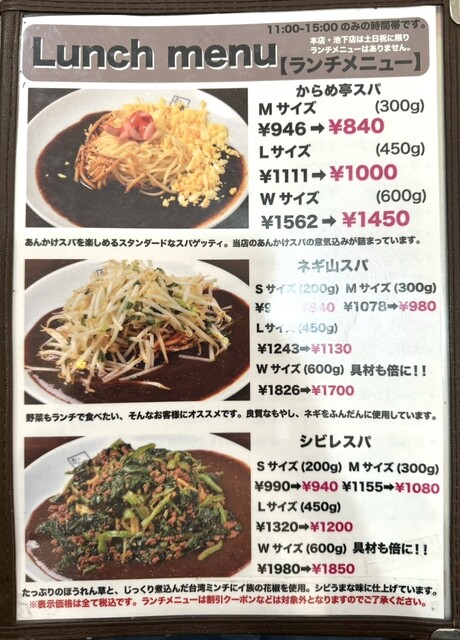 11:00-15:00 のみの時間帯です。
Lunch menu
本店・池下店は土日祝に限り
ランチメニューはありません。
【ランチメニュー】
からめ亭スパ
Mサイズ (300g)
¥946➡¥840
Lサイズ (450g)
¥1111➡¥1000
Wサイズ (600g)
¥1562➡¥1450
あんかけスパを楽しめるスタンダードなスパゲッティ。当店のあんかけスパの意気込みが詰まっています。
ネギ山スパ
Sサイズ(200g) Mサイズ(300g)
¥1078➡¥980
Lサイズ(450g)
¥1243➡¥1130
Wサイズ(600g) 具材も倍に!!
¥1826➡¥1700
野菜もランチで食べたい、そんなお客様にオススメです。良質なもやし、ネギをふんだんに使用しています。
シビレスパ
Sサイズ(200g) Mサイズ(300g)
¥990➡¥940 ¥1155➡¥1080
Lサイズ(450g)
¥1320➡¥1200
Wサイズ(600g) 具材も倍に!!
¥1980➡¥1850
たっぷりのほうれん草と、じっくり煮込んだ台湾ミンチにイ族の花椒を使用。シビうまな味に仕上げています。
※表示価格は全て税込です。ランチメニューは割引クーポンなどは対象外となりますのでご了承ください。